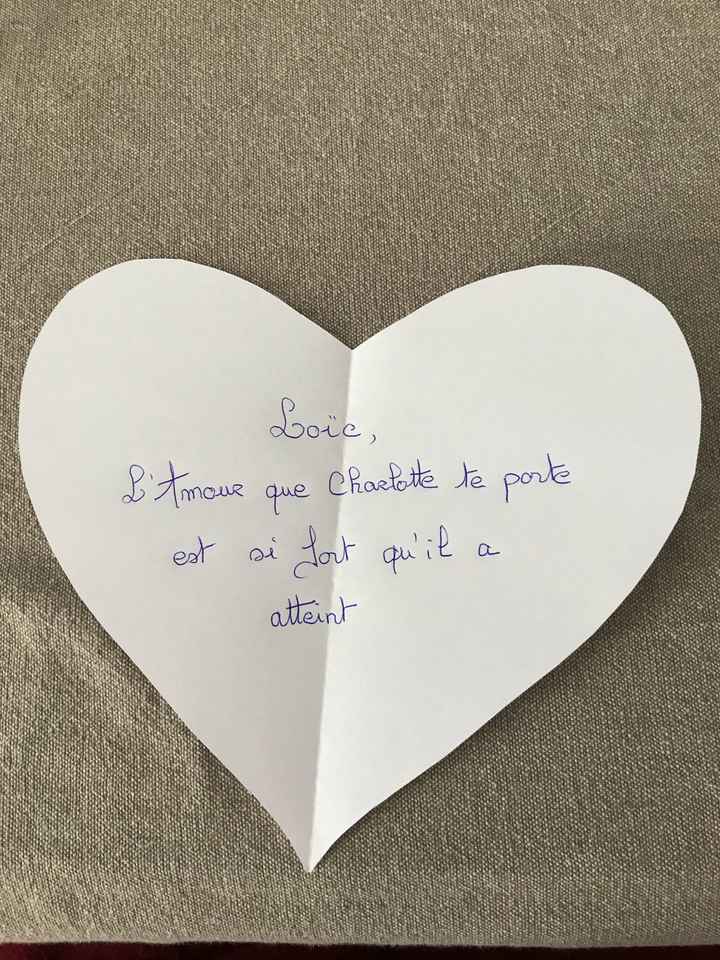 Loïc,
L'Amour que Charlotte te porte
est si fort qu'il a
atteint